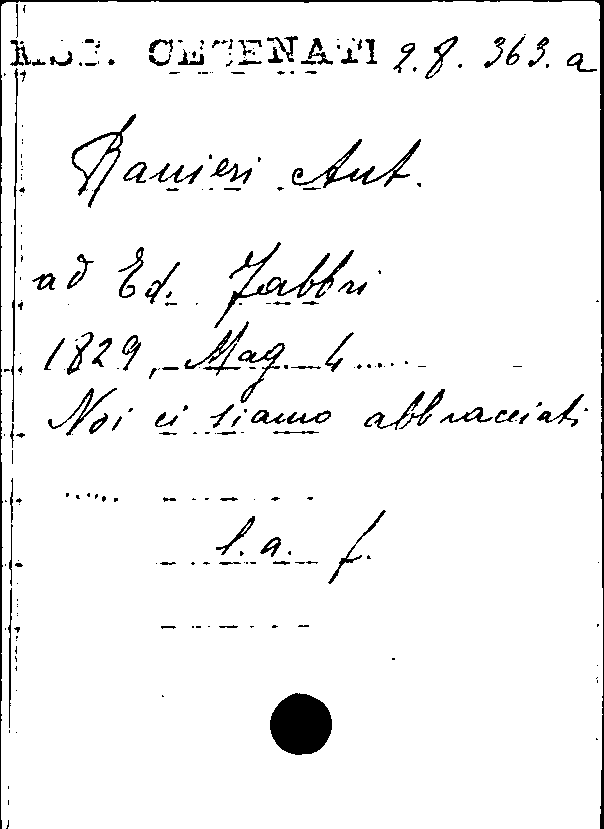 MSS. CESENATI 2.8.363.a
Ranieri Ant.
ad Ed. Fabbri
1829, Mag. 4.....
Noi ci siamo abbracciati
......
l.a. f.